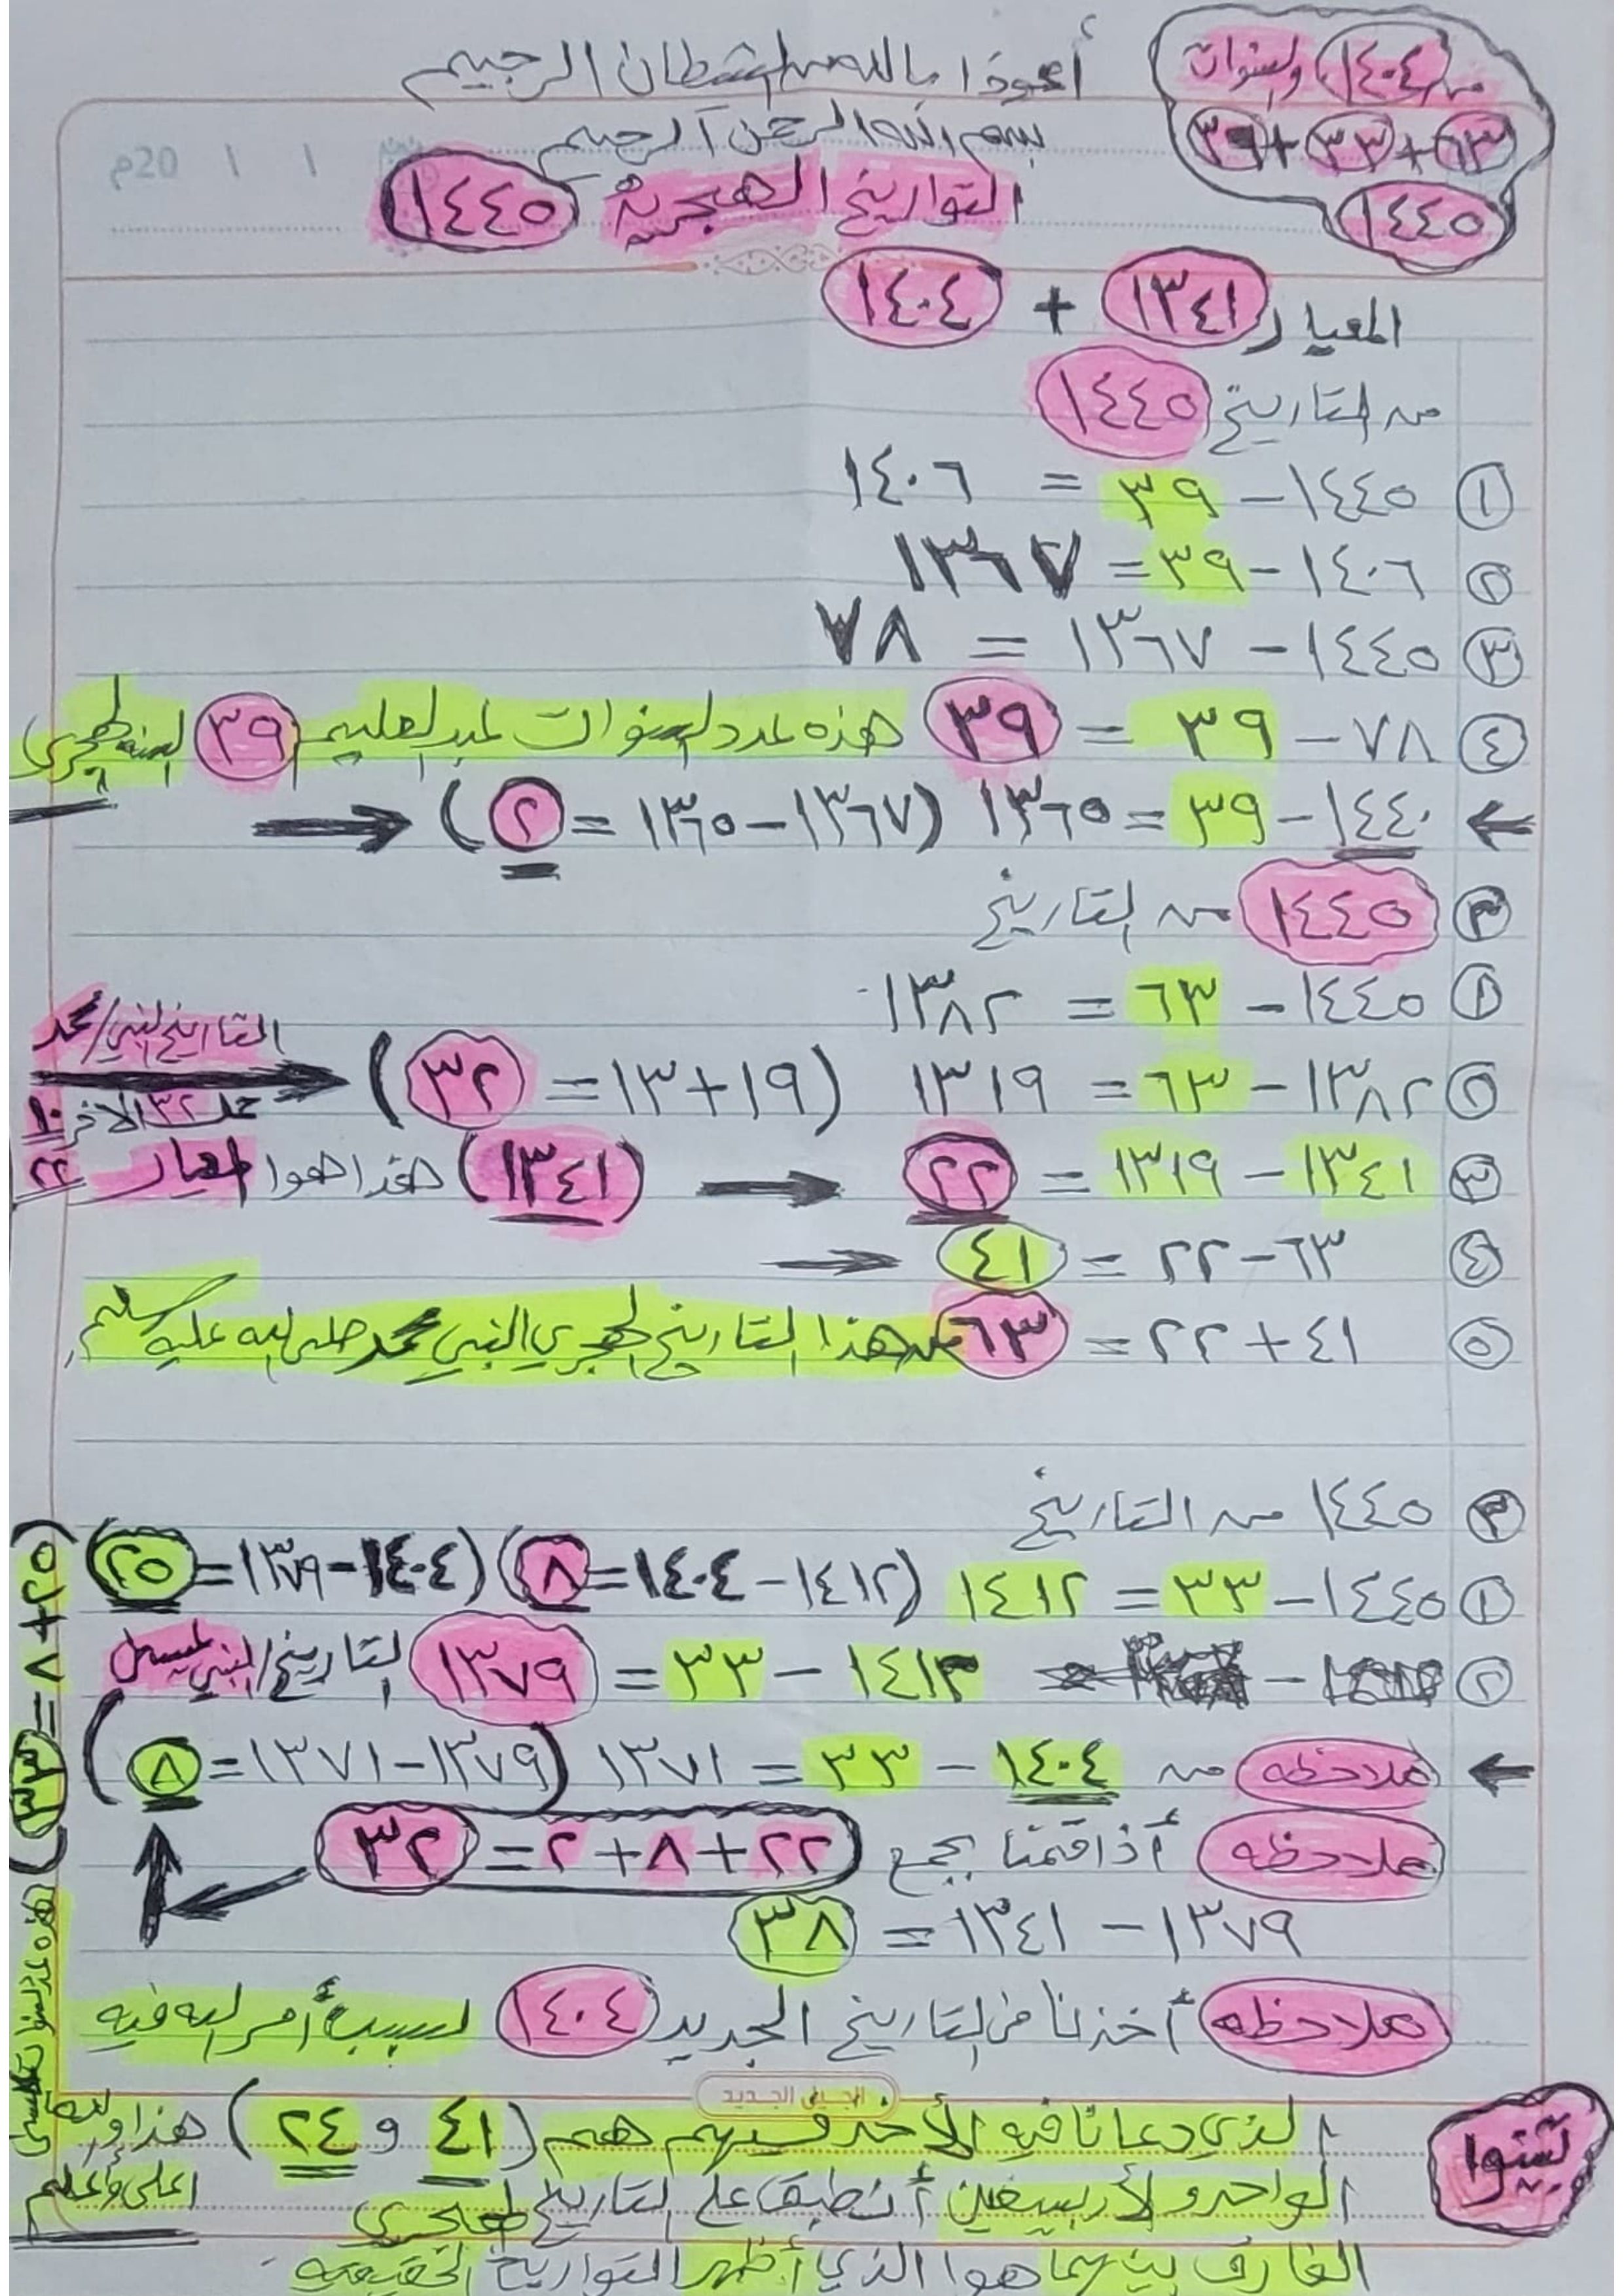 أعوذا بالله من الشطان الرجيم
بسم الله الرحمن الرحيم
التواريخ الهجرية ١٤٤٥
من ١٤٠٤ والسنوات
٦٣+٣٣+٣٩
١٤٤٥
20م / /
المعيار ١٣٤١ + ١٤٠٤
من التاريخ ١٤٤٥
١ ١٤٤٥ − ٣٩ = ١٤٠٦
٢ ١٤٠٦ − ٣٩ = ١٣٦٧
٣ ١٤٤٥ − ١٣٦٧ = ٧٨
٤ ٧٨ − ٣٩ = ٣٩ هذه عدد السنوات لعبد العليم ٣٩ لسنه الهجري
← ١٤٤٠ − ٣٩ = ١٣٦٥ (١٣٦٧ − ١٣٦٥ = ٢) →
٣ ١٤٤٥ من التاريخ
١ ١٤٤٥ − ٦٣ = ١٣٨٢
٢ ١٣٨٢ − ٦٣ = ١٣١٩ (١٩+١٣ = ٣٢) →
التاريخ النبي/محمد
٣٢ الآخر ١٠
٣ ١٣٤١ − ١٣١٩ = ٢٢ → (١٣٤١) هذا هوا المعيار ٢٢
٤ ٦٣ − ٢٢ = ٤١ →
٥ ٤١ + ٢٢ = ٦٣ هذا التاريخ الهجري النبي محمد صلى الله عليه وسلم
٣ ١٤٤٥ من التاريخ
١ ١٤٤٥ − ٣٣ = ١٤١٢ (١٤١٢ − ١٤٠٤ = ٨) (١٤٠٤ − ١٣٧٩ = ٢٥)
٢ ١٤١٣ − ٣٣ = ١٣٧٩ التاريخ/النبي
← ملاحظه من ١٤٠٤ − ٣٣ = ١٣٧١ (١٣٧٩ − ١٣٧١ = ٨)
ملاحظه أذا قمنا بجمع ٢٢+٨+٢ = ٣٢
١٣٧٩ − ١٣٤١ = ٣٨
ملاحظه أخذنا من التاريخ الجديد ١٤٠٤ لسبب أمر الله فيه
الجيل الجديد
الذي دعانا فيه الأخذ هم (٤١ و ٢٤) هذا والله
الواحد والأربعين أنطبق على التاريخ الهجري
أعلى وأعلم
الفارق بينهما هوا الذي أظهر التواريخ الحقيقيه
(٢٥+٨=٣٣) هذه عدد السنوات